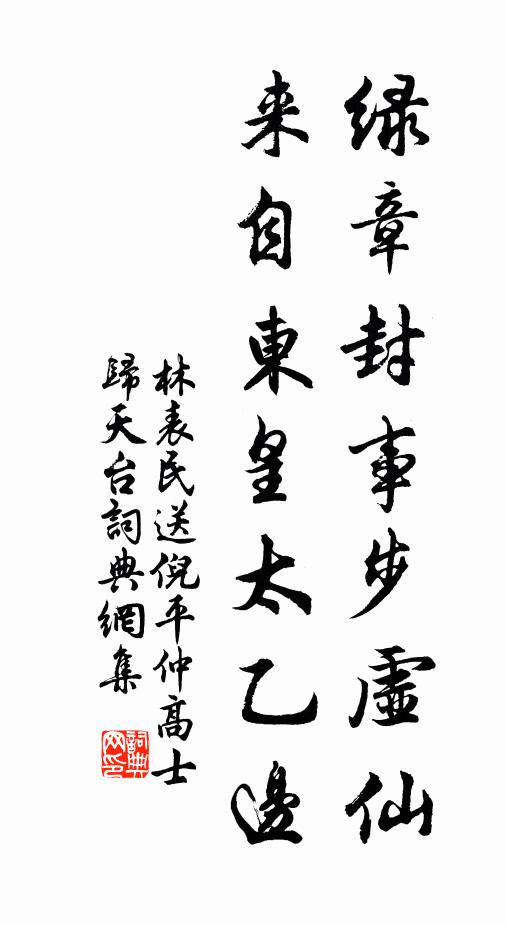 绿章封事步虛仙
来自東皇太乙邊
林表民送倪平仲高士
歸天台詞典網集
詞典网印